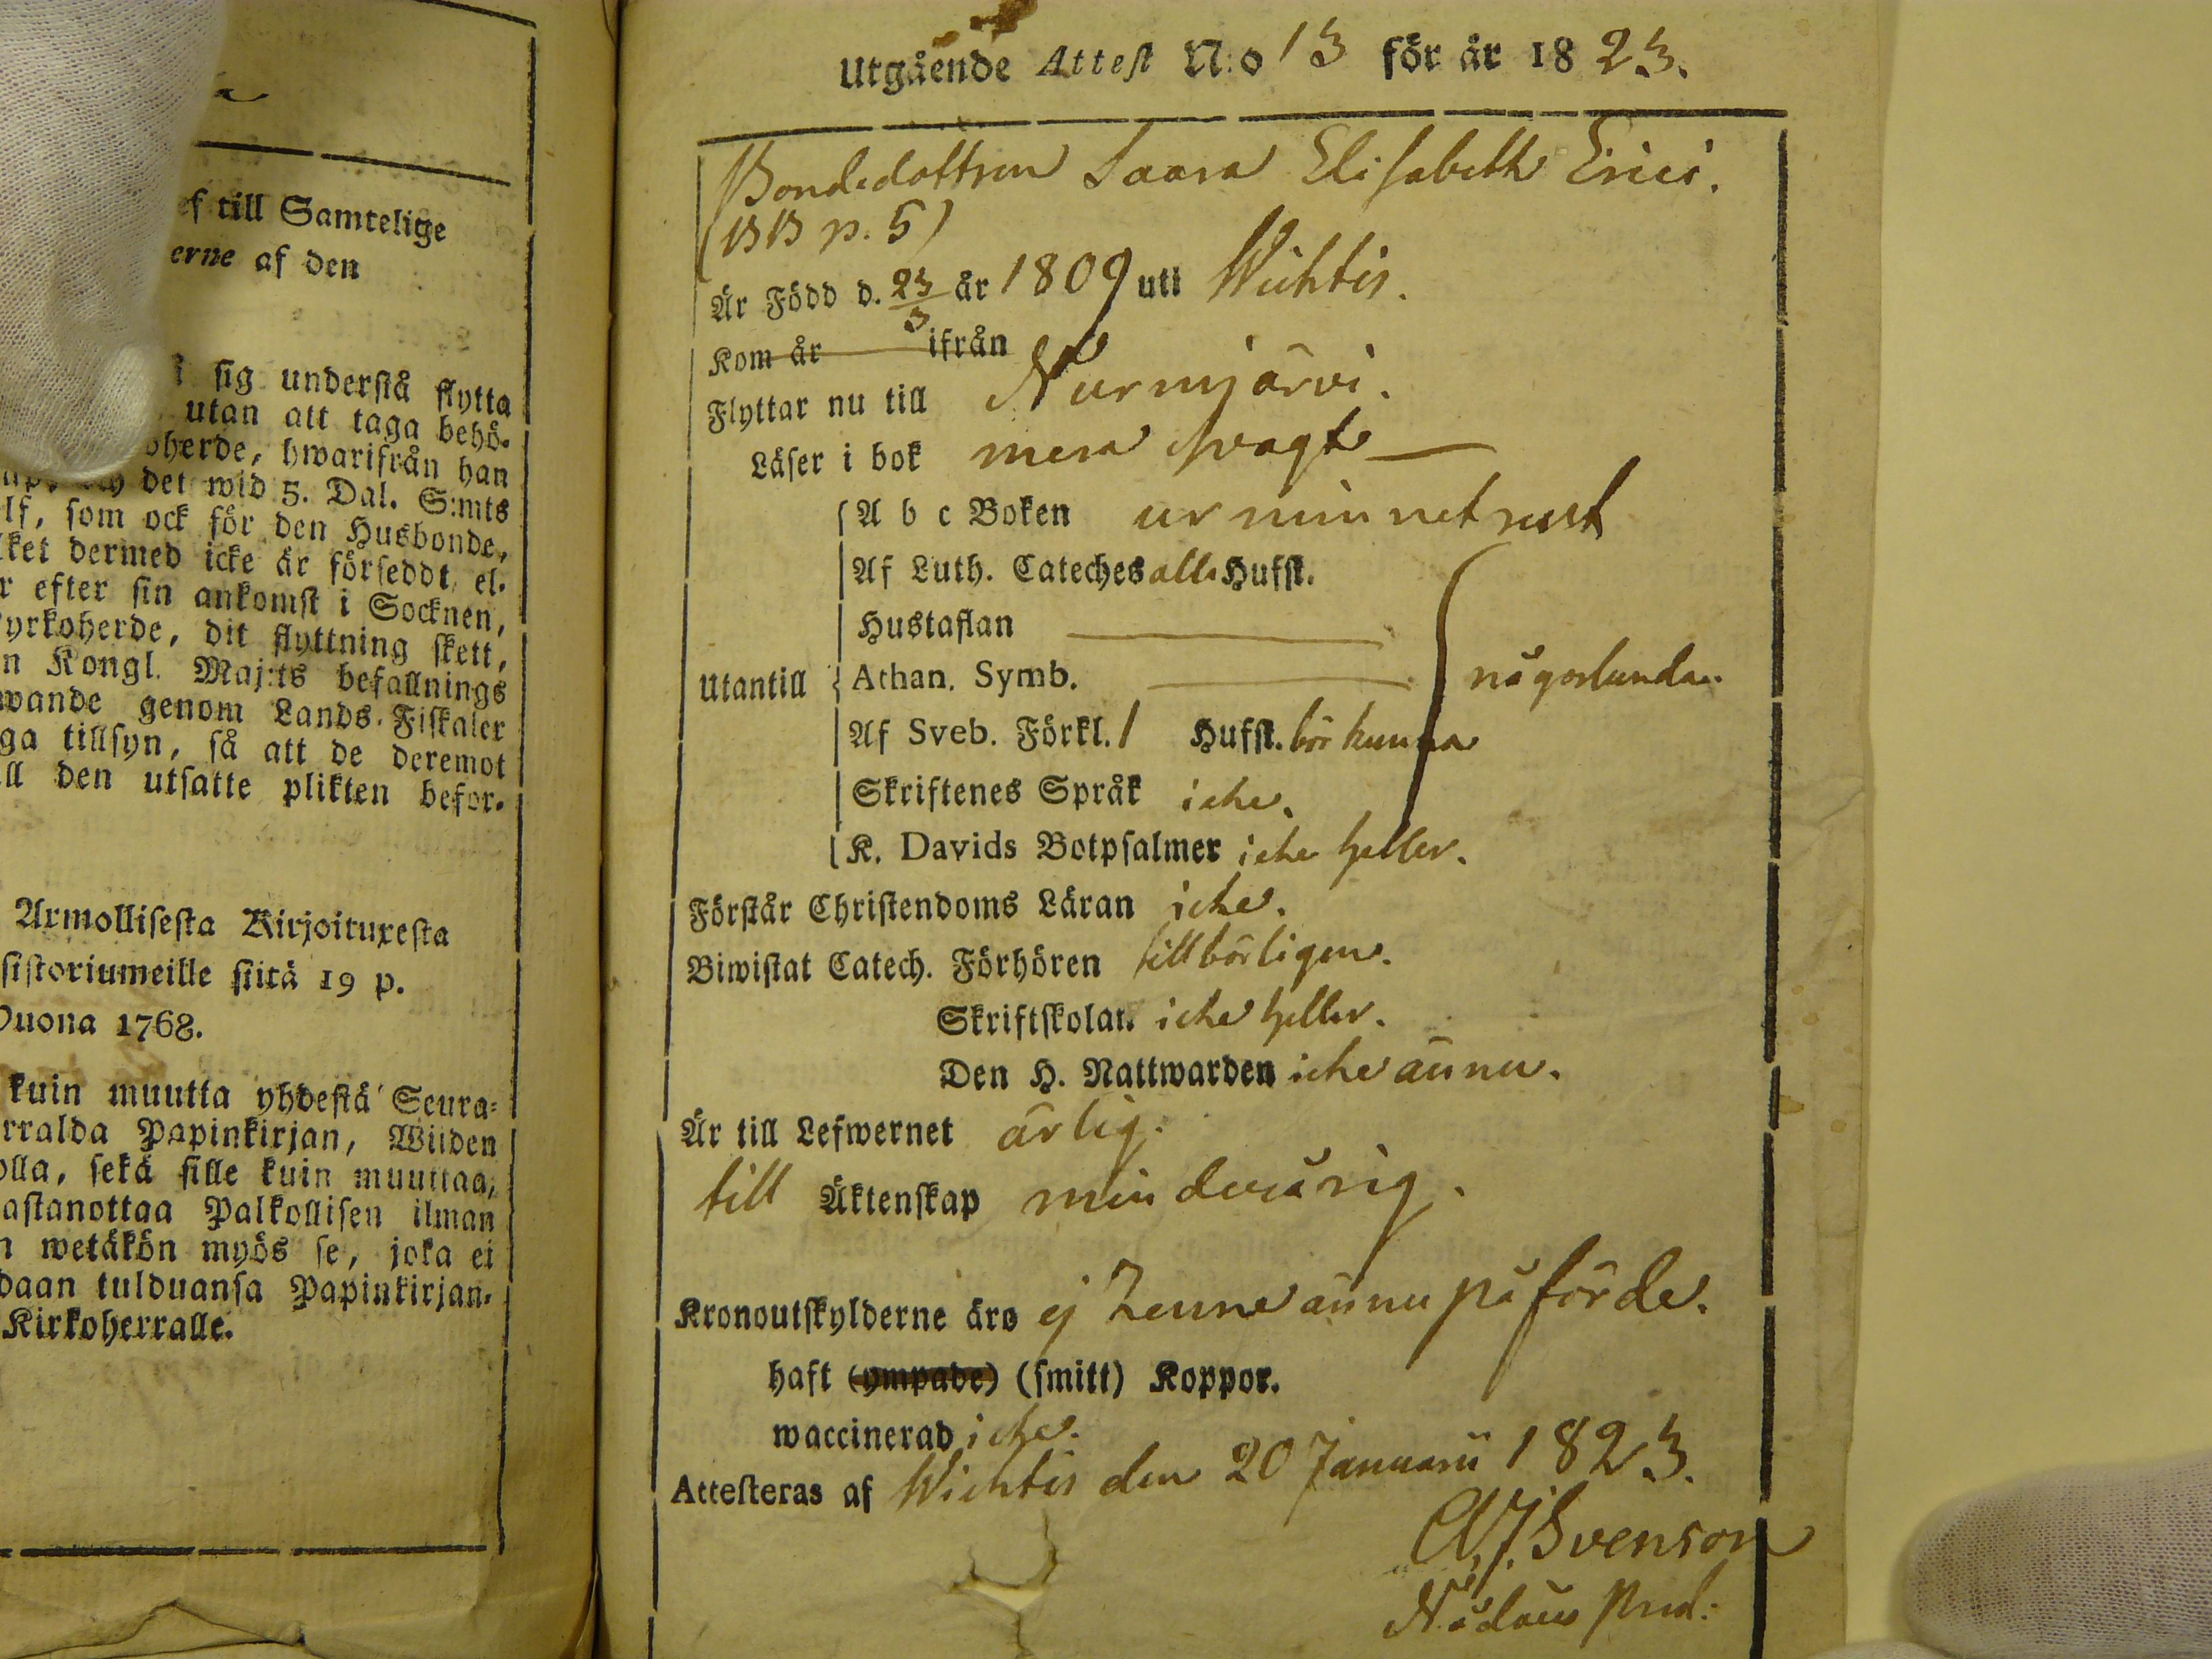 a
ef till Samtelige
erne af den
i sig understå flytta
utan att taga behö-
oherde, hwarifrån han
det wid 5. Dal. S:mts
lf, som ock för den Husbonde,
lket dermed icke är förseddt, el-
r efter sin ankomst i Socknen,
yrkoherde, dit flyttning skett,
n Kongl. Maj:ts befallnings
wande genom Lands-Fiskaler
ga tillsyn, så att de deremot
ll den utsatte plikten befor-
Armollisesta Kirjoituxesta
sistoriumeille siitä 19 p.
Ouona 1768.
kuin muutta yhdestä Seura-
rralda Papinkirjan, Wiiden
olla, sekä sille kuin muuttaa,
astanottaa Palkollisen ilman
n wetäkön myös se, joka ei
daan tulduansa Papinkirjan-
Kirkoherralle.
Utgående Attest N:o 13 för år 1823.
Bondedottren Saara Elisabeth Erici.
(BB p. 5)
Är Född d. 23/3 år 1809 uti Wichtis.
Kom år ifrån
Flyttar nu till Nurmijärvi.
Läser i bok mera svagt
A b c Boken ur minnet rest
Af Luth. Cateches alla Hufst.
Hustaflan
Utantill Athan. Symb. någorlunda.
Af Sveb. Förkl. 1 Hufst. bör kunna
Skriftenes Språk icke.
K. Davids Botpsalmer icke heller.
Förstår Christendoms Läran icke.
Biwistat Catech. Förhören tillbörligen.
Skriftskolan icke heller.
Den H. Nattwarden icke ännu.
Är till Lefwernet ärlig.
till Äktenskap minderårig.
Kronoutskylderne äro ej henne ännu påförde.
haft (ympade) (smitt) Koppor.
waccinerad icke.
Attesteras af Wichtis den 20 Januarii 1823.
A. J. Svenson
Nådaårs Pred.